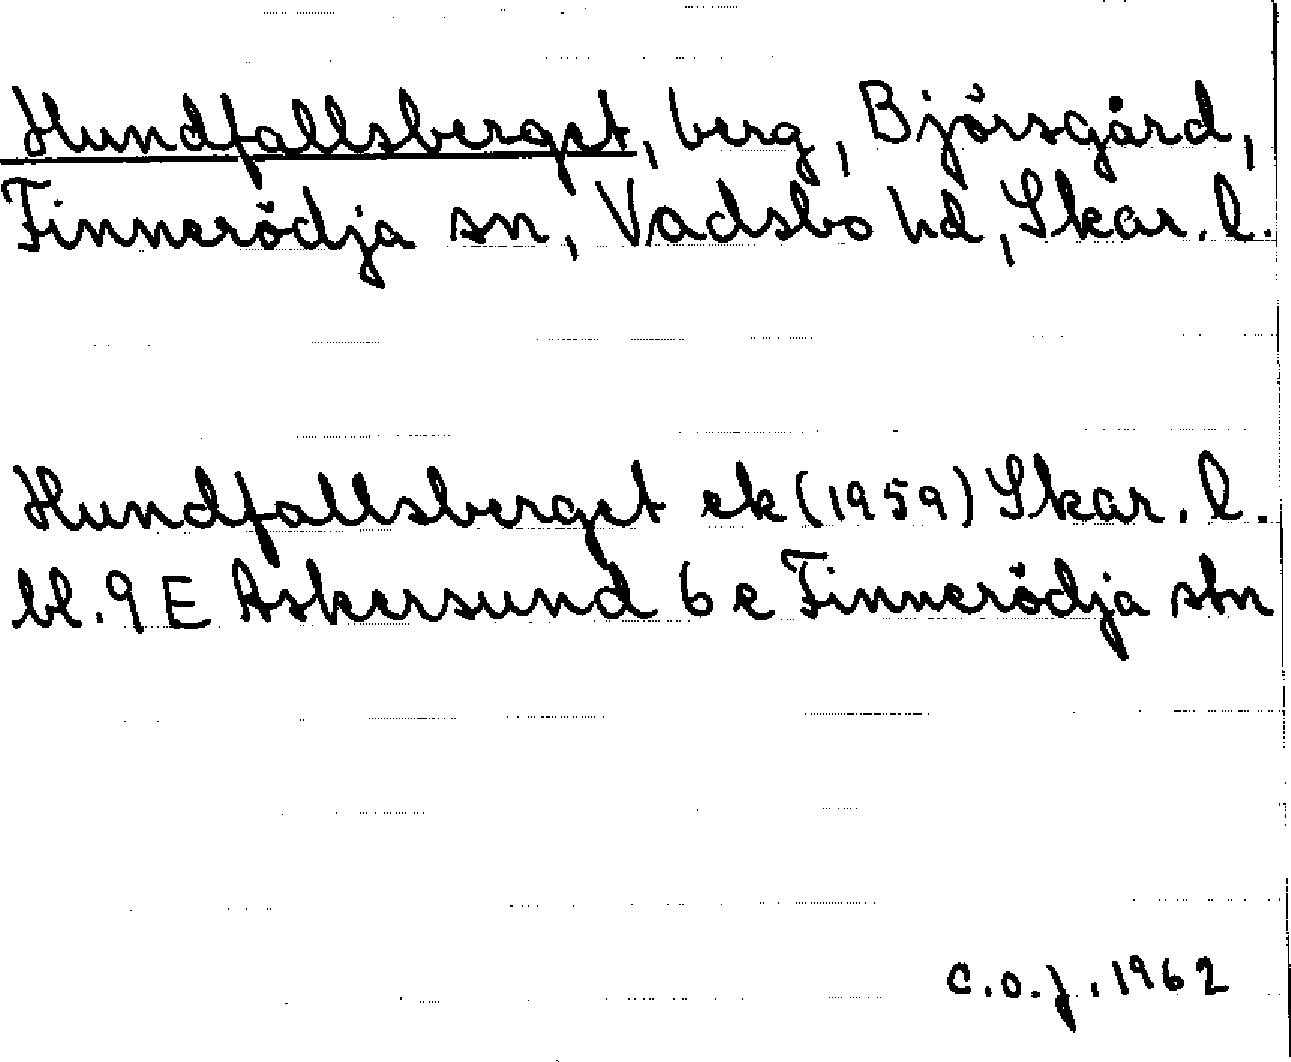 Hundfallsberget, berg, Björsgård,
Finnerödja sn, Vadsbo hd, Skar. l.
Hundfallsberget ek (1959) Skar. l.
bl. 9 E Askersund 6 e Finnerödja stn
C.O.J. 1962